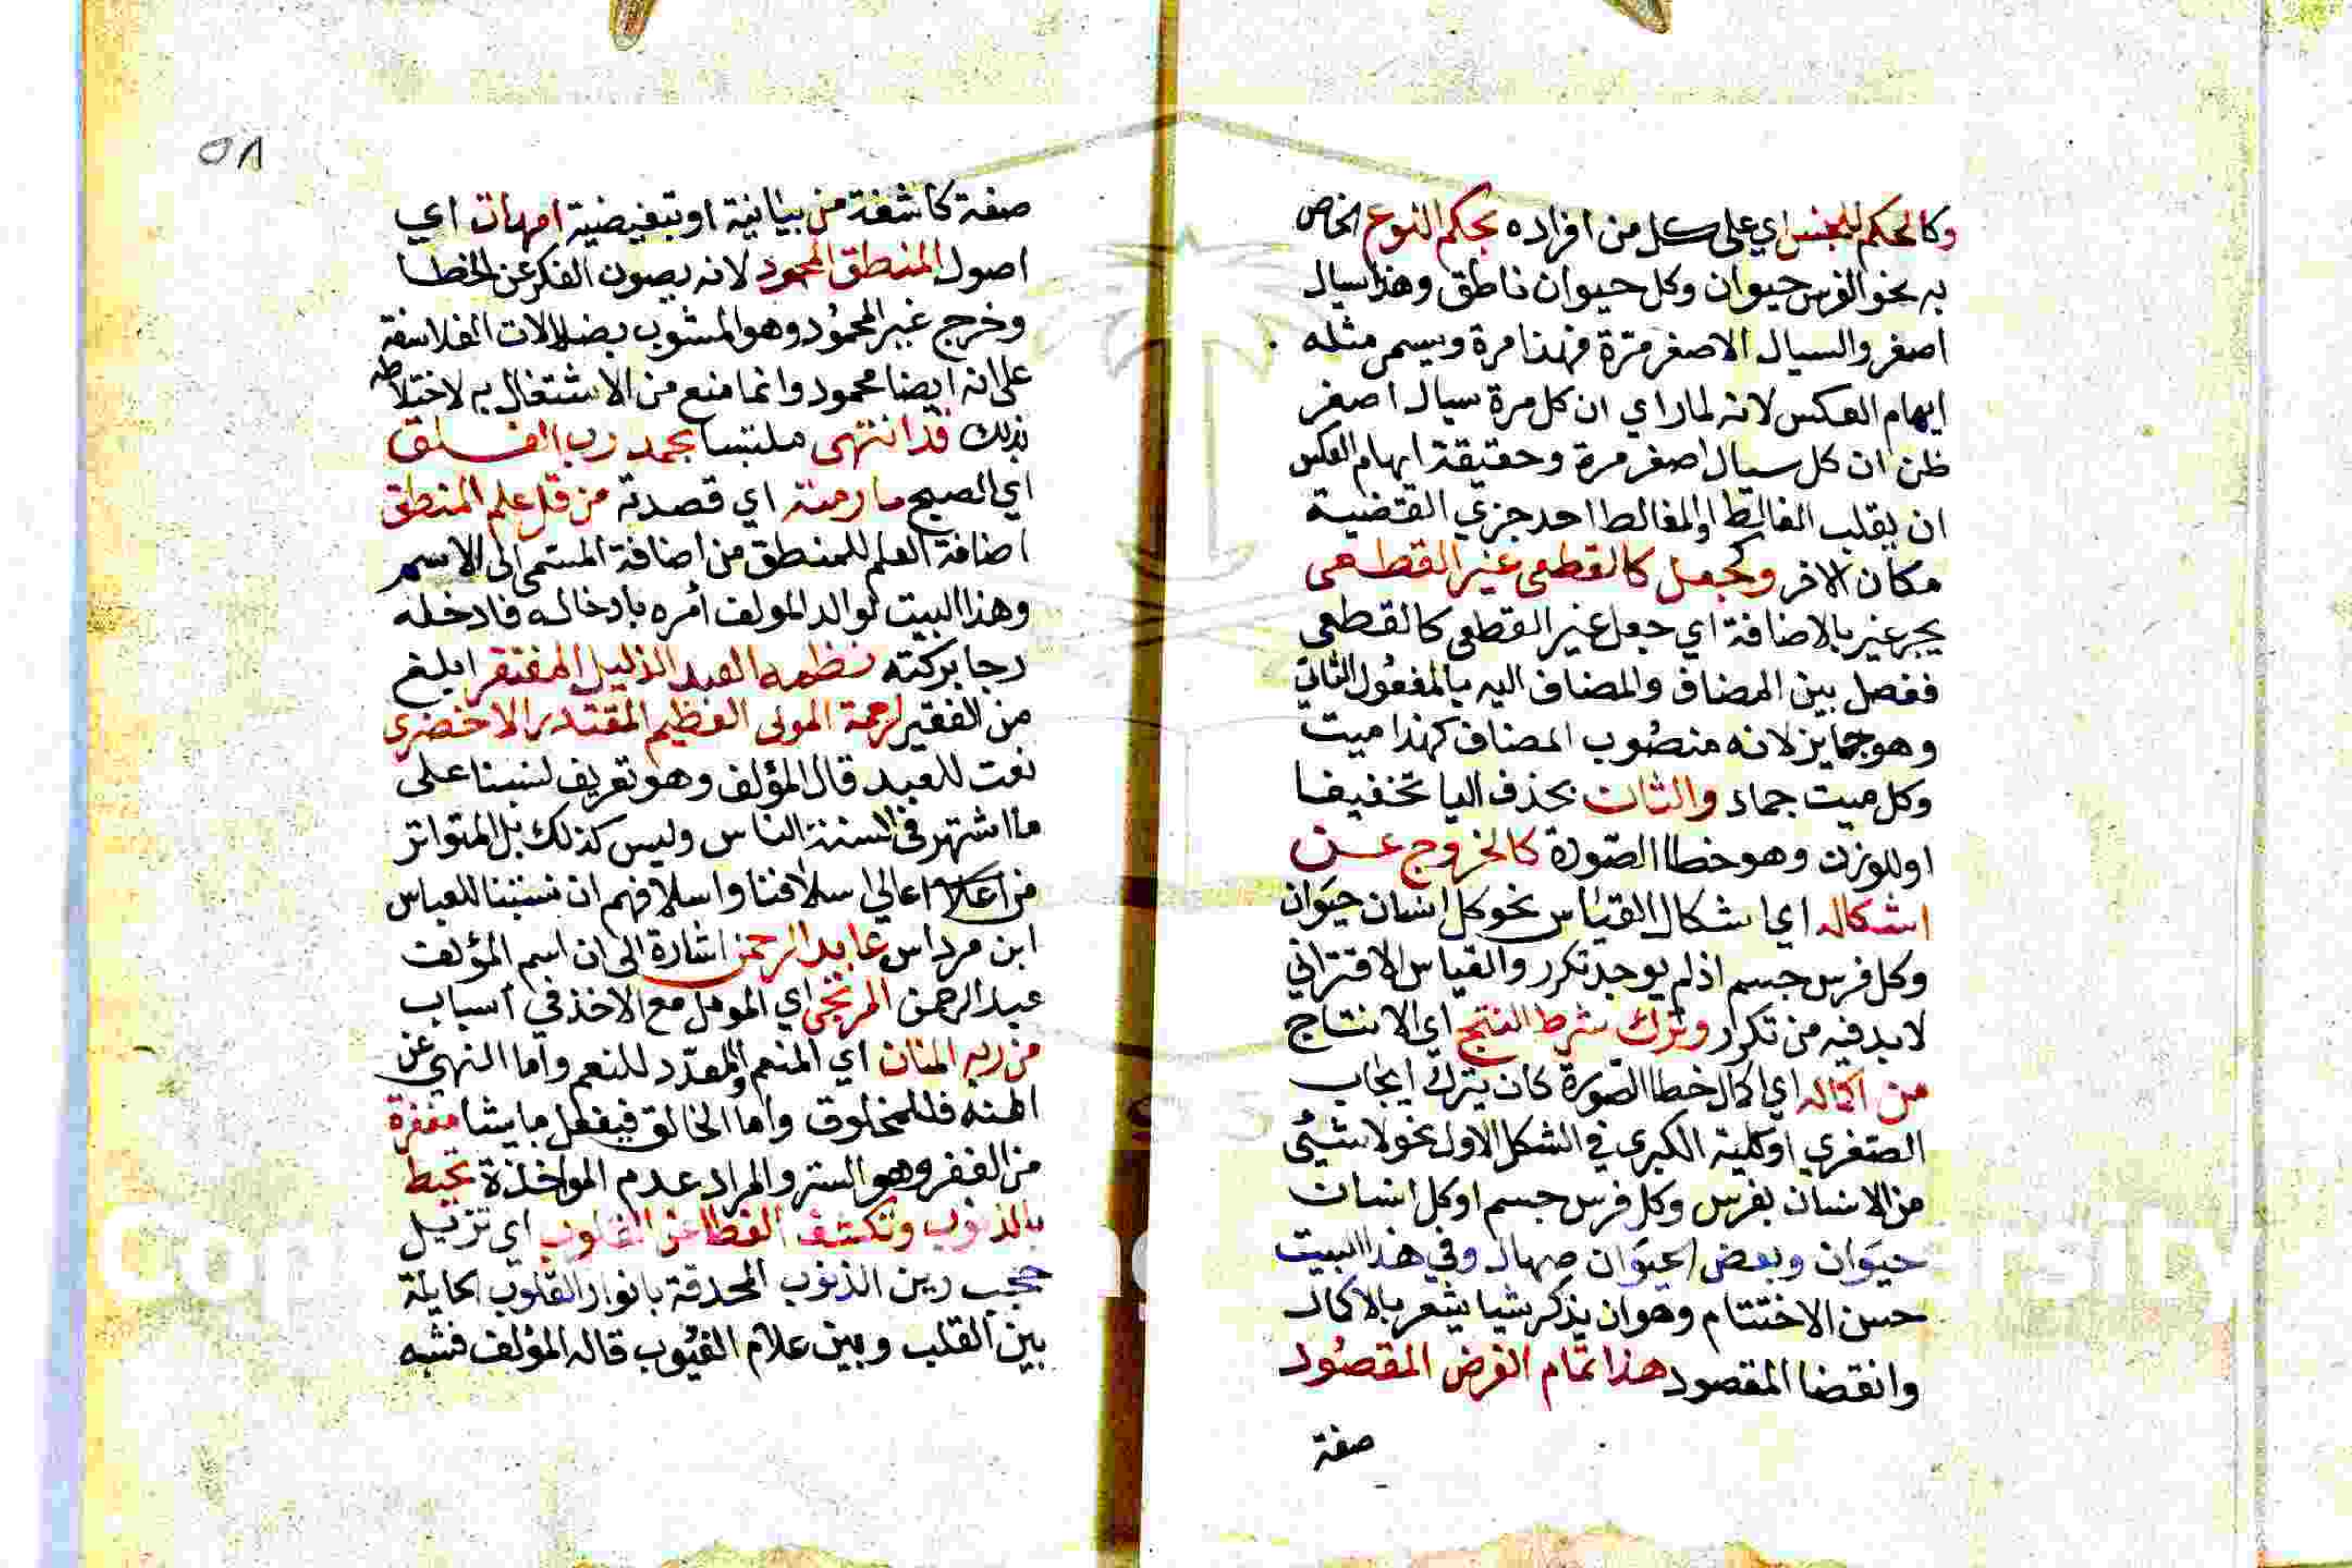 وكالحكم للجنس اي على كل من افراده بحكم النوع الخاص
به نحو الفرس حيوان وكل حيوان ناطق وهذا سيال
اصفر والسيال الاصفر مرة فهذا مرة ويسمى مثله
ايهام العكس لانه لما راي ان كل مرة سيال اصفر
ظن ان كل سيال اصفر مرة وحقيقة ايهام العكس
ان يقلب الغالط او المغالط احد جزي القضية
مكان الاخر وكجعل كالقطعى غير القطعى
بجر غير بالاضافة اي جعل غير القطعى كالقطعى
ففصل بين المضاف والمضاف اليه بالمفعول الثاني
وهو جايز لانه منصوب المضاف كهذا ميت
وكل ميت جماد والثان بحذف اليا تخفيفا
او للوزن وهو خطا الصورة كالخروج عن
اشكاله اي اشكال القياس نحو كل انسان حيوان
وكل فرس جسم اذ لم يوجد تكرر والقياس الاقتراني
لابد فيه من تكرر وترك شرط النتج اي الانتاج
من اكماله اي اكمال خطا الصورة كان يترك ايجاب
الصغري او كلية الكبرى في الشكل الاول نحو لا شيئ
من الانسان بفرس وكل فرس جسم او كل انسان
حيوان وبعض الحيوان صهال وفي هذا البيت
حسن الاختتام وهو ان يذكر شيا يشعر بالاكمال
وانقضا المقصود هذا تمام الغرض المقصود
صفة
٥٨
صفة كاشفة من بيانية او تبعيضية امهات اي
اصول المنطق المحمود لانه يصون الفكر عن الخطا
وخرج غير المحمود وهو المشوب بضلالات الفلاسفة
على انه ايضا محمود وانما منع من الاشتغال به لاختلاطه
بذلك قد انتهى ملتبسا بحمد رب الفلق
اي الصبح ما رمته اي قصدته من فن علم المنطق
اضافة العلم للمنطق من اضافة المسمى الى الاسم
وهذا البيت لوالد المولف أمره بادخاله فادخله
رجا بركته نظمه العبد الذليل المفتقر ابلغ
من الفقير لرحمة المولى العظيم المقتدر الاخضرى
نعت للعبد قال المؤلف وهو تعريف لنسبنا على
ما اشتهر في السنة الناس وليس كذلك بل المتواتر
من اعالي اسلافنا واسلافهم ان نسبتنا للعباس
ابن مرداس عابد الرحمن اشارة الى ان اسم المؤلف
عبد الرحمن المرتجى اي المومل مع الاخذ في أسباب
من ربه المنان اي المنعم والمعدد للنعم واما النهي عن
المنه فللمخلوق واما الخالق فيفعل ما يشا مغفرة
من الغفر وهو الستر والمراد عدم المواخذة تحيط
بالذنوب وتكشف الغطا عن القلوب اي تزيل
حجب رين الذنوب المحدقة بانوار القلوب الحايلة
بين القلب وبين علام الغيوب قاله المؤلف فشبه